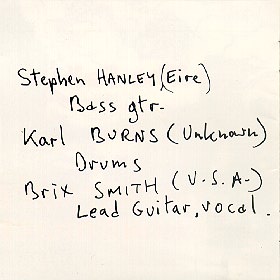 Stephen HANLEY (Eire)
Bass gtr.
Karl BURNS (Unknown)
Drums
Brix SMITH (U.S.A.)
Lead Guitar, vocal.